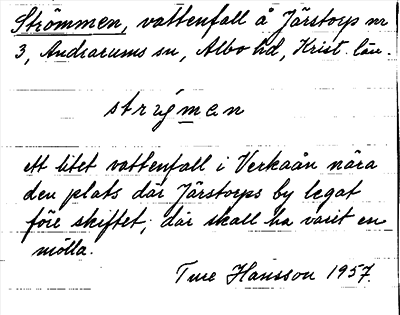 Strömmen, vattenfall å Järstorp nr
3, Andrarums sn, Albo hd, Krist. län.
strýmen
ett litet vattenfall i Verkaån nära
den plats där Järstorps by legat
före skiftet; där skall ha varit en
mölla.
Ture Hansson 1957.